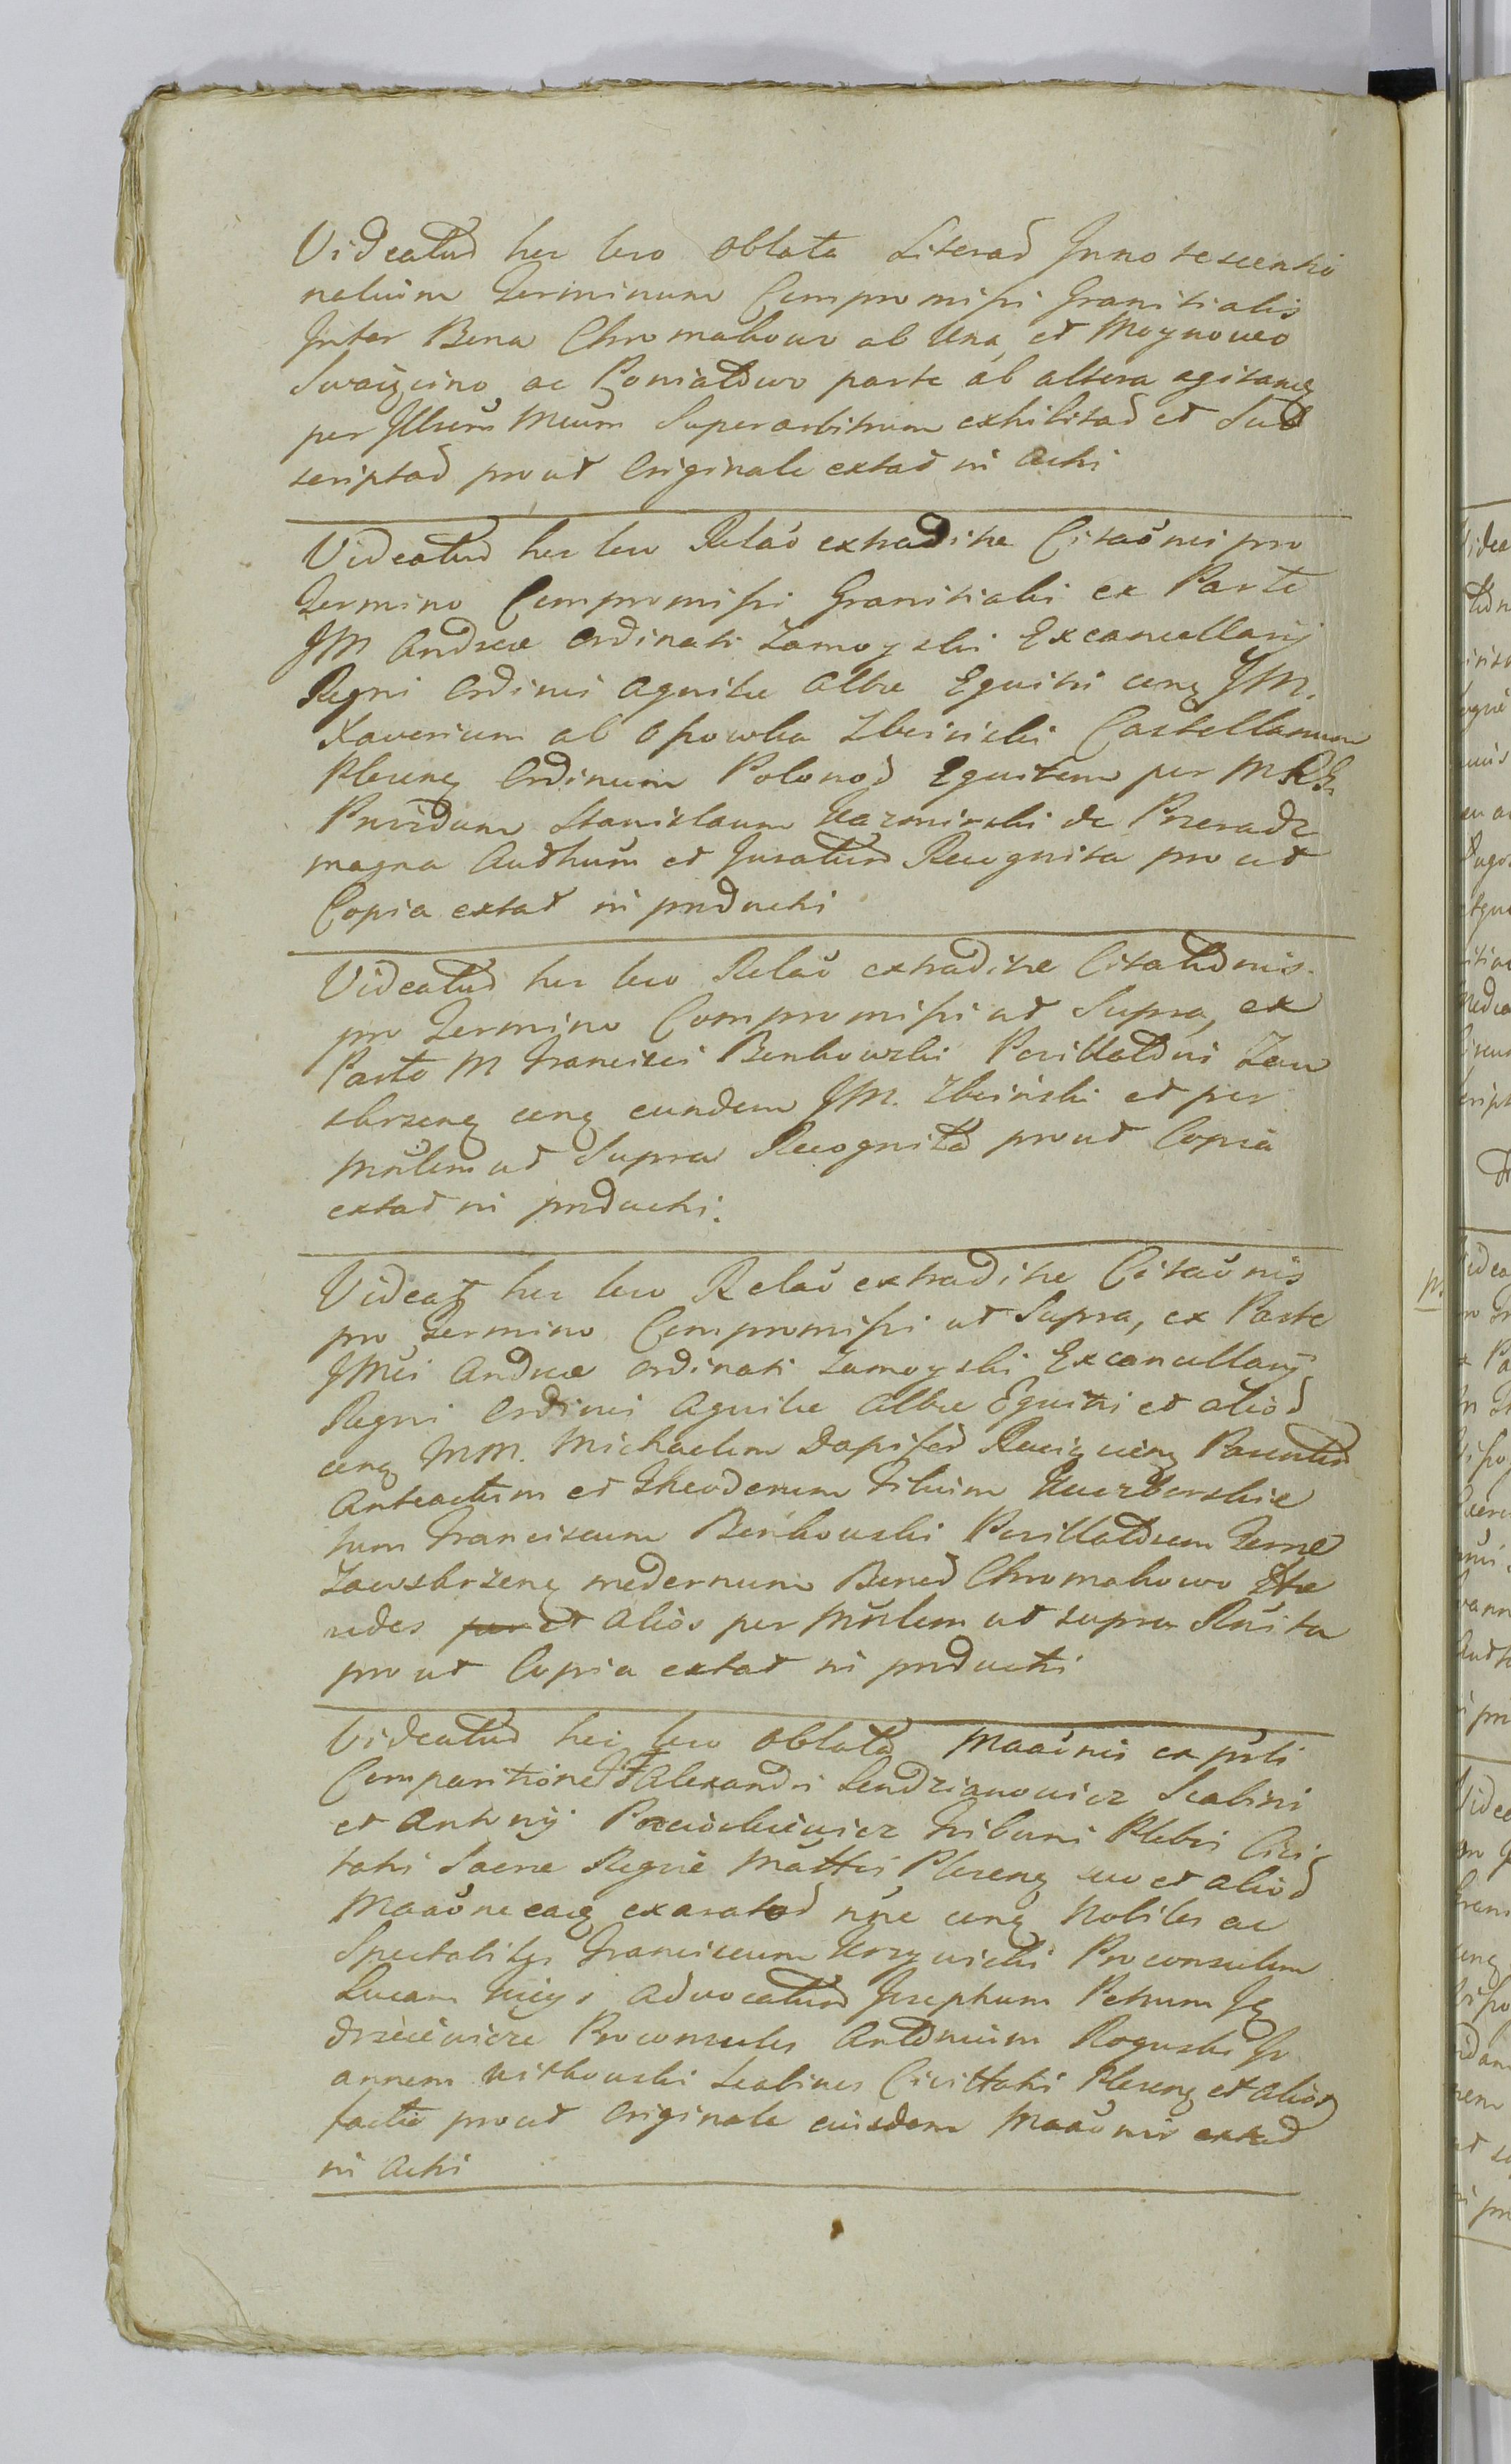 Videatur hic loco Oblata Literar Innotescentio
nalium Terminum Compromissi Granitialis
Inter Bona Chromakowo ab Una, et Moynowo
ac Poniatowo parte ab altera agitanq
per Illrem Mcum Superarbitrum exhibitar et Sub
scriptar prout Originale extat in Actis
Videatur hic loco Relao extraditae Citaonis pro
Termino Compromissi Granitialis ex Parte
JM Andreae Ordinati Zamoyski Excancellarij
Regni Ordinis Aquilae Albae Equitis cenq JM.
Xaverium ab Osowka Zboinski Castellanum
Plocenq Ordinum Polonor Equitem per M
Providum Stanislaum Kazmirski de
magna Authum et Juratum Recognita prout
Copia extat in prductis
Videatur hic loco Relao extraditae Citationis
pro Termino Compromissi ut Supra, ex
Parte M Francisci Benkowski Pocillatoris Zaw
skrzenq cenq eundem JM. Zboinski et per
Mnlem ut Supra Recognita prout Copia
extat in prductis.
Videatq hic loco Relao extraditae Citaonis
pro Termino Compromissi ut Supra, ex Parte
JMci Andreae Ordinati Zamoyski Excancellarij
Regni Ordinis Aquilae Albae Equitis et alior
cenq MM. Michaelem Dapifer Raciązcenq Parentem
Anteactum et Theodorum Filium
tum Franciscum Benkowski Pocillatorem Terrae
Zawskrzenq modernum Bonor Chromakowo Hae
redes et Alios per Mnlem ut supra Rnita
prout Copia extat in prductis
Videatur hic loco Oblata Maaonis ex prti
Comparitione Alexandri Lendzianowicz Scabini
et Antonij Tribuni Plebis Civi
tatis Sacrae Regiae Mattis Plocenq suo et alior
Maaone eaq exaratar nne cenq Nobiles ac
Spectabiles Franciscum Krzywicki Proconsulem
Lucam Advocatum Josephum Petrum Ję
drzeiewicze Proconsules Antonium Roguski Jo
annem Witkowski Scabinos Civittatis Plocenq et alios
factae prout Originale eiusdem Maaonis extat
in Actis